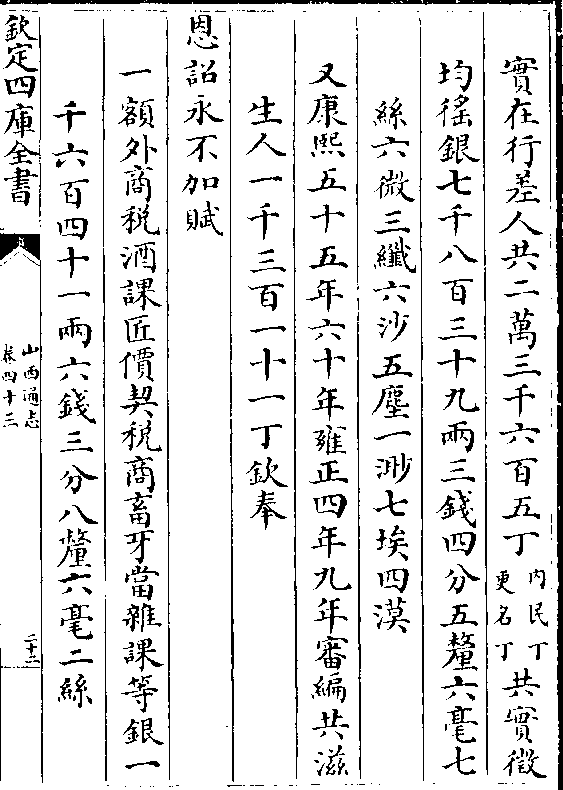 實在行差人共二萬三千六百五丁內民丁更名丁共實徵
均徭銀七千八百三十九兩三錢四分五釐六毫七
絲六微三纖六沙五塵一渺七埃四漠
又康熙五十五年六十年雍正四年九年審編共滋
生人一千三百一十一丁欽奉
恩詔永不加賦
一額外商稅酒課匠價契稅商畜牙當雜課等銀一
千六百四十一兩六錢三分八釐六毫二絲
欽定四庫全書
山西通志
卷四十二
二十二